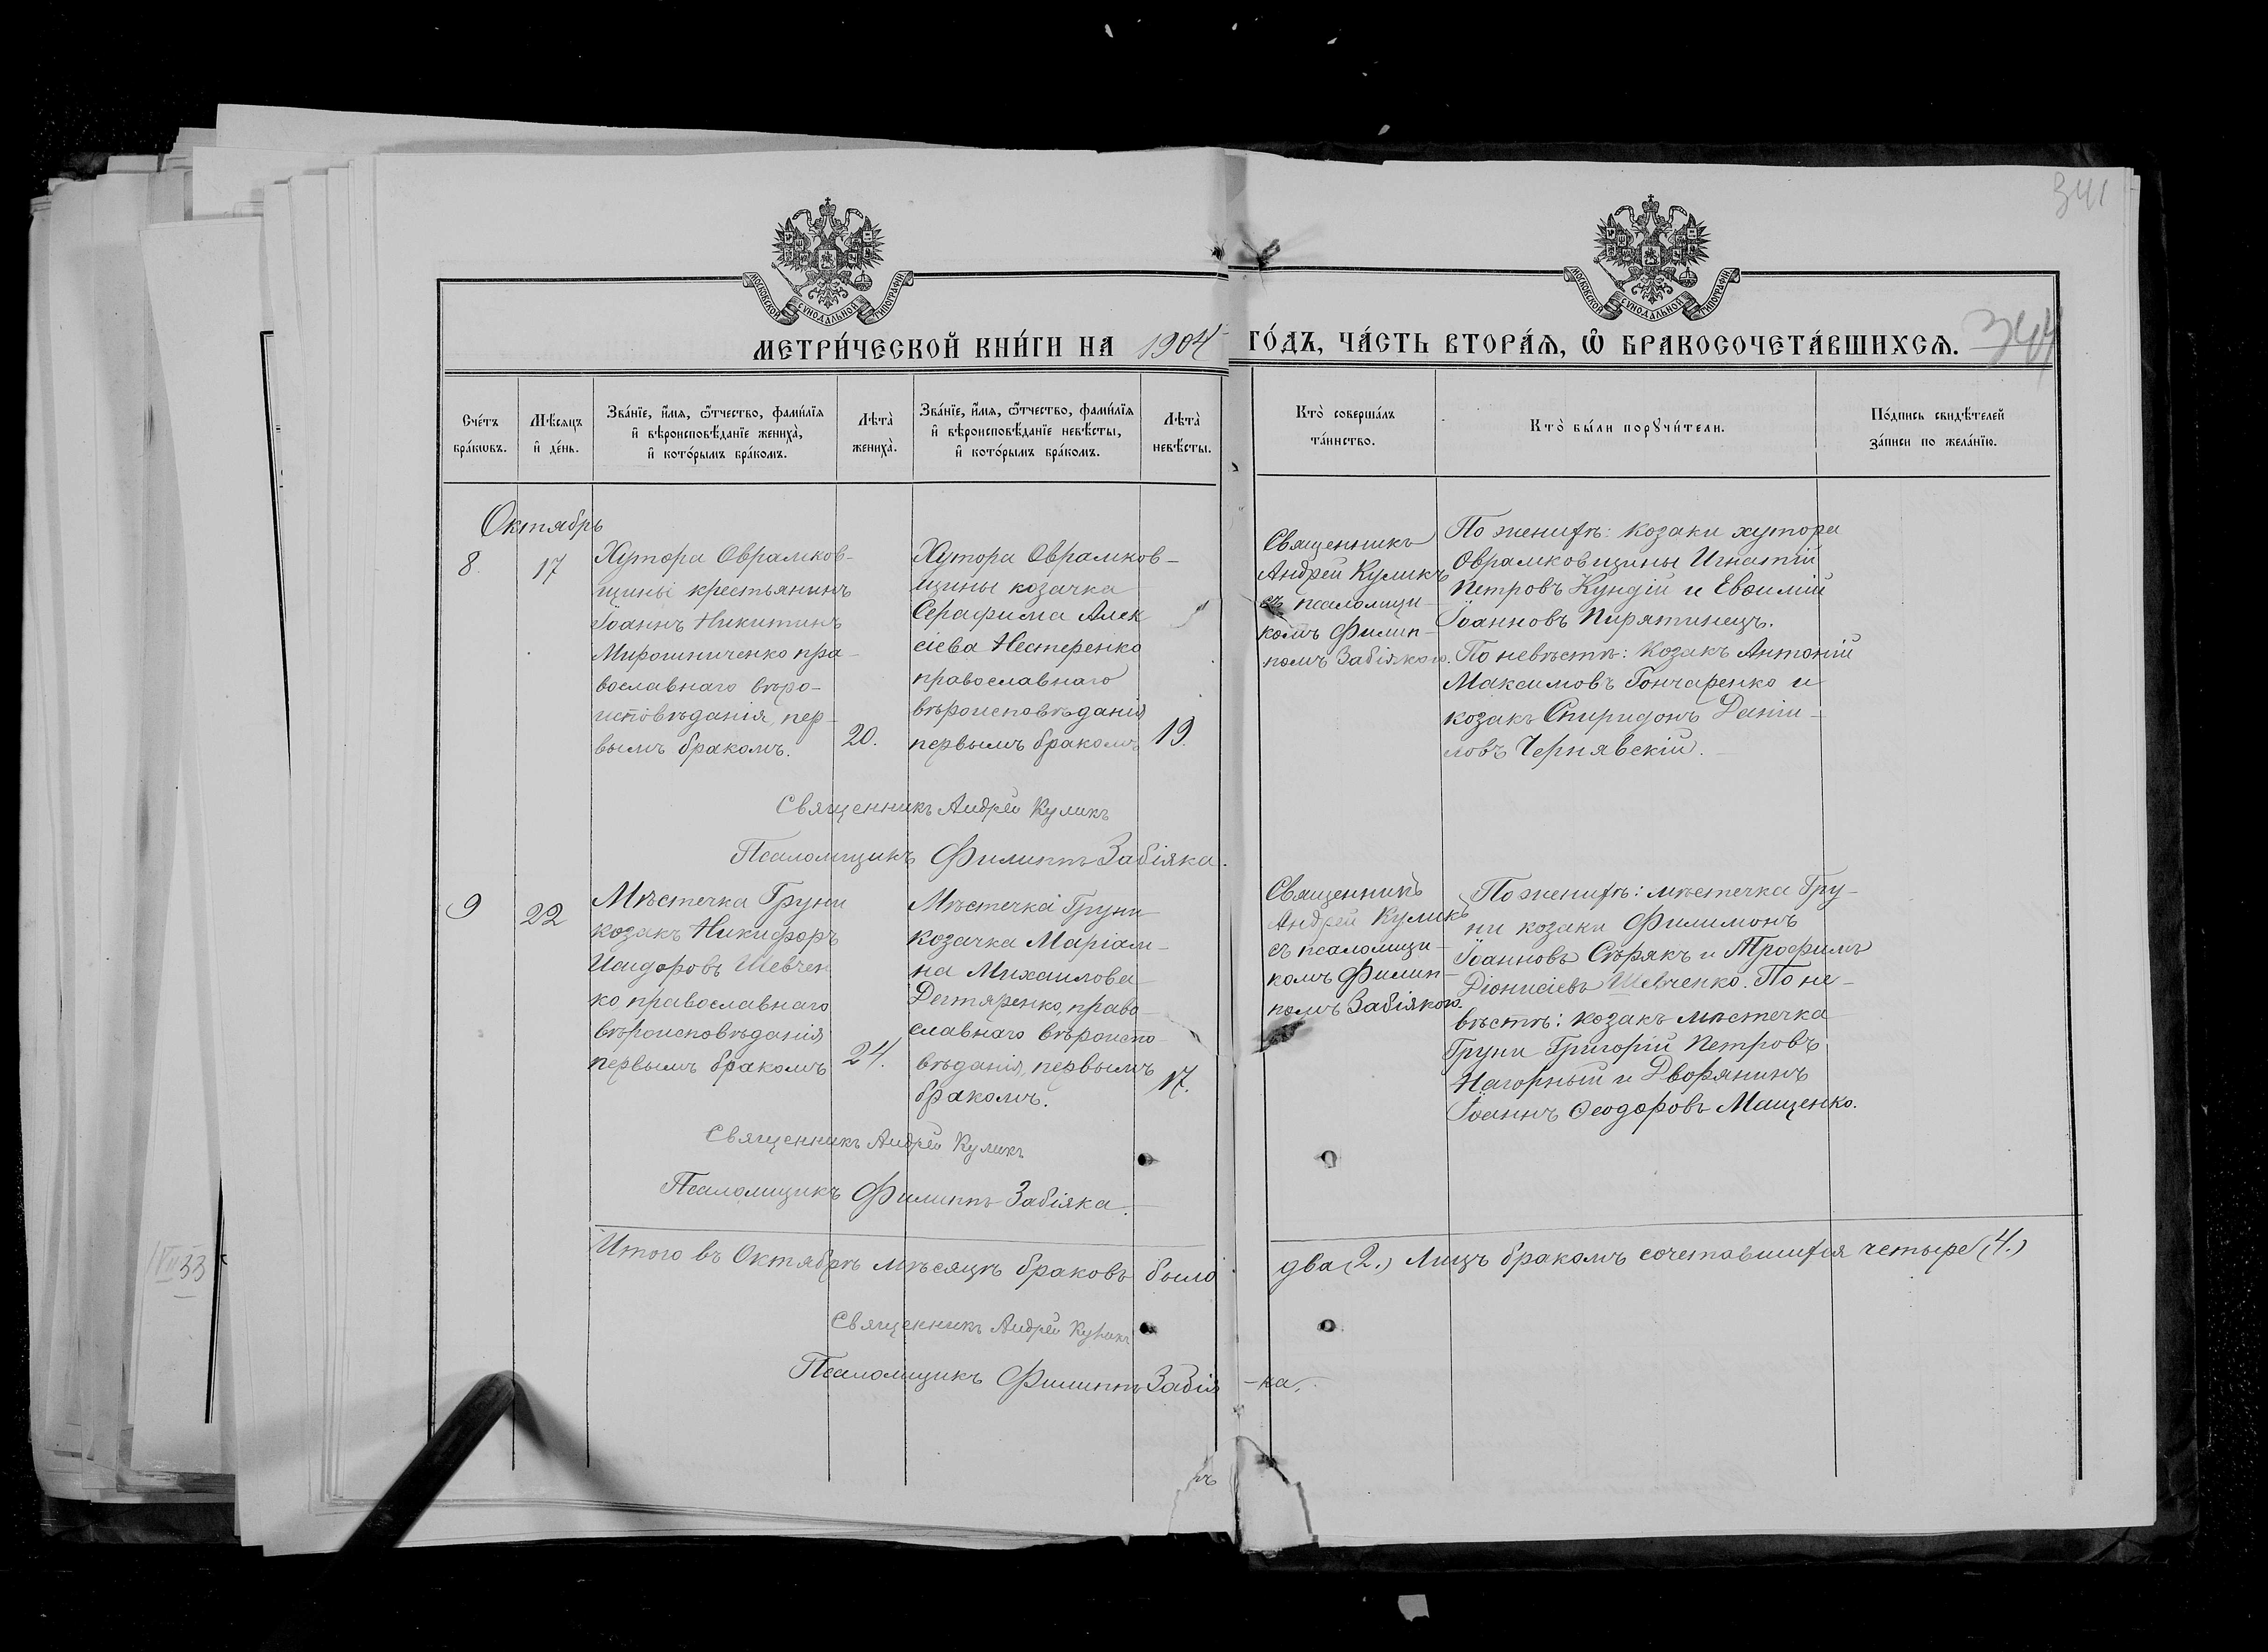 341
МОСКОВСКОЙ СѴНОДАЛЬНОЙ ТИПОГРАФІИ
МОСКОВСКОЙ СѴНОДАЛЬНОЙ ТИПОГРАФІИ
МЕТРИ́ЧЕСКОЙ КНИ́ГИ НА 1904
ГО́ДЪ, ЧА́СТЬ ВТОРА́Ѧ, Ѽ БРАКОСОЧЕТА́ВШИХСѦ.
344
Сче́тъ бра́кѡвъ.
Мѣ́сѧцъ и҆ де́нь.
Зва́нїе, и҆́мѧ, ѻ҆́тчество, фами́лїѧ и҆ вѣроисповѣ́данїе жениха̀, и҆ кото́рымъ бра́комъ.
Лѣта̀ жениха̀.
Зва́нїе, и҆́мѧ, ѻ҆́тчество, фами́лїѧ и҆ вѣроисповѣ́данїе невѣ́сты, и҆ кото́рымъ бра́комъ.
Лѣта̀ невѣ́сты.
Кто̀ соверша́лъ та́инство.
Кто̀ бы́ли порꙋчи́тели.
По́дпись свидѣ́телей за́писи по жела́нїю.
Октябрь
8.
17
Хутора Оврамков-
щины крестьянинъ
Іоаннъ Никитинъ
Мирошниченко пра-
вославнаго вѣро-
исповѣданія, пер-
вымъ бракомъ.
20.
Хутора Оврамков-
щины козачка
Серафима Алек
сіева Нестеренко
православнаго
вѣроисповѣданія
первымъ бракомъ
19.
Священникъ
Андрей Куликъ
съ псаломщи-
комъ Филип-
помъ Забіякою.
По женихѣ: козаки хутора
Оврамковщины Игнатій
Петровъ Кундій и Евѳимій
Іоанновъ Пирятинецъ.
По невѣстѣ: Козакъ Антоній
Максимовъ Гончаренко и
козакъ Спиридонъ Даніи-
ловъ Чернявскій.
Священникъ Андрей Куликъ
Псаломщикъ Филиппъ Забіяка.
9
22
Мѣстечка Груни
козакъ Никифоръ
Исидоровъ Шевчен
ко православнаго
вѣроисповѣданія
первымъ бракомъ
24.
Мѣстечка Груни
козачка Маріам-
на Михаилова
Дегтяренко, право-
славнаго вѣроиспо-
вѣданія, первымъ
бракомъ.
17.
Священникъ
Андрей Куликъ
съ псаломщи-
комъ Филип-
помъ Забіякою.
По женихѣ: мѣстечка Гру-
ни козаки Филимонъ
Іоанновъ Сѣрякъ и Трофимъ
Діонисіевъ Шевченко. По не-
вѣстѣ: козакъ мѣстечка
Груни Григорій Петровъ
Нагорный и Дворянинъ
Іоаннъ Ѳеодоровъ Мащенко.
Священникъ Андрей Куликъ
Псаломщикъ Филиппъ Забіяка.
Итого въ Октябрѣ мѣсяцѣ браковъ было два (2.) Лицъ бракомъ сочетавшихся четыре (4.)
Священникъ Андрей Куликъ
Псаломщикъ Филиппъ Забія-ка.